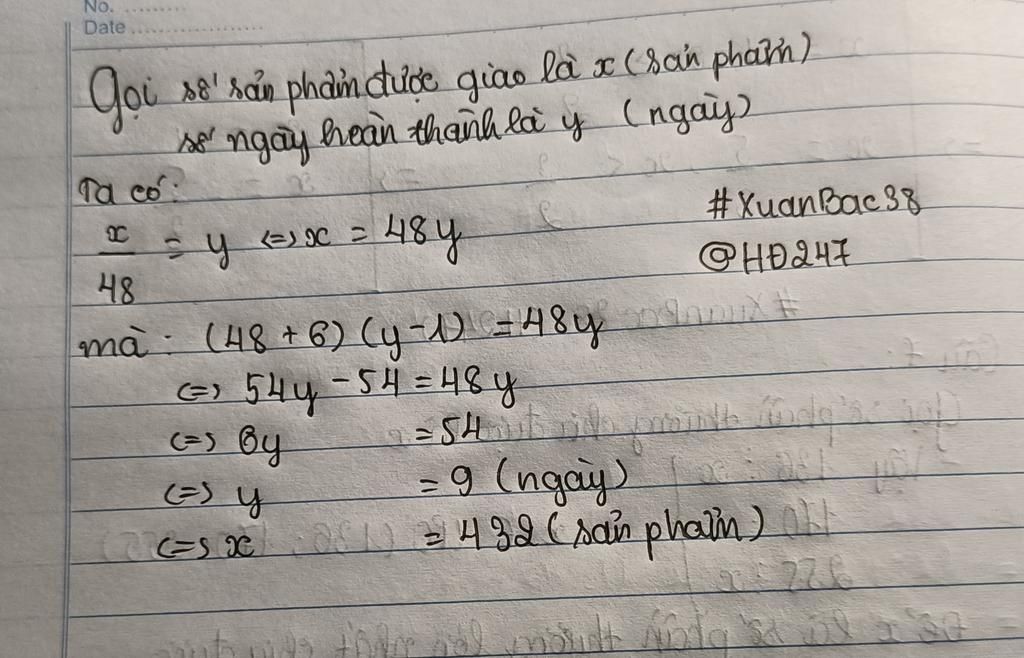 No. .........
Date ...................
Gọi số sản phẩm được giao là x (sản phẩm)
số ngày hoàn thành là y (ngày)
Ta có:
x/48 = y <=> x = 48y
#XuanBac38
@HĐ247
mà: (48 + 6) (y - 1) = 48y
<=> 54y - 54 = 48y
<=> 6y = 54
<=> y = 9 (ngày)
<=> x = 432 (sản phẩm)